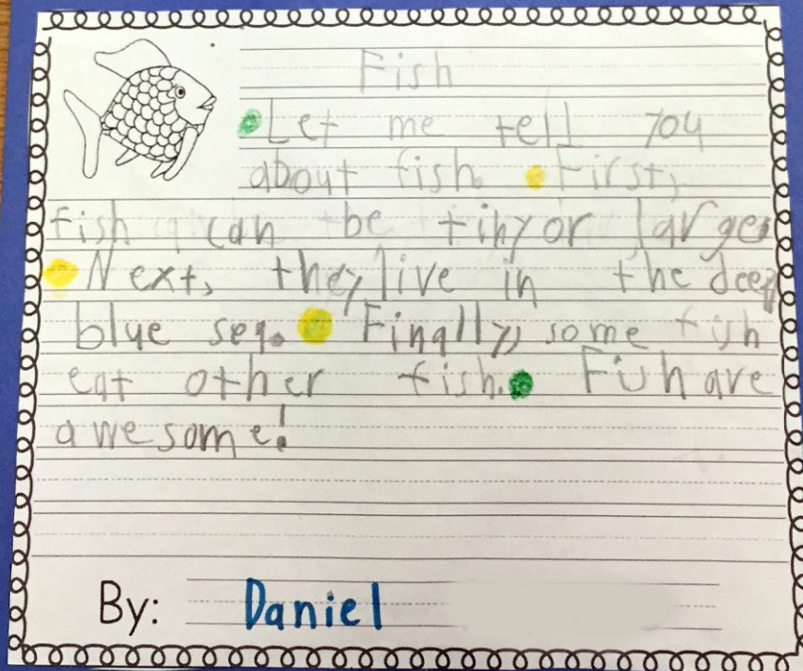 Fish
Let me tell you
about fish. First,
fish can be tiny or large.
Next, they live in the deep
blue sea. Finally, some fish
eat other fish. Fish are
awesome!
By: Daniel